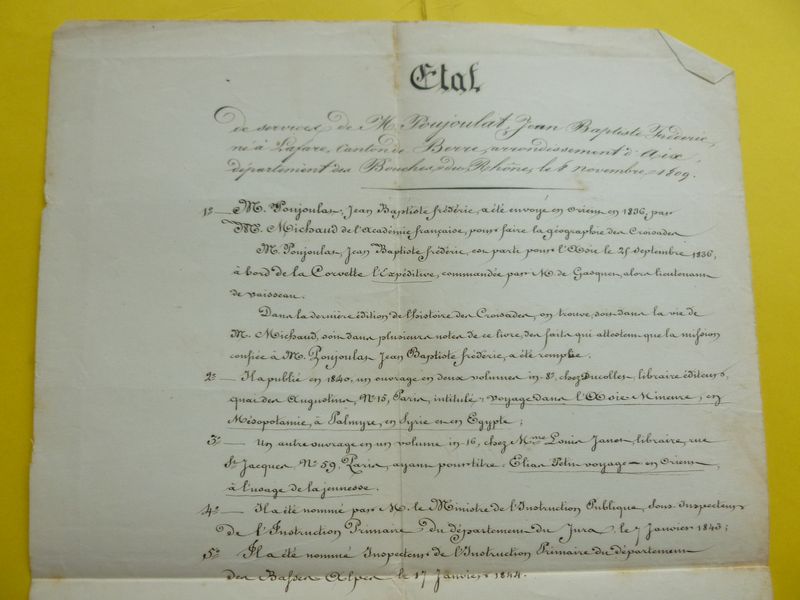 Etat
de services de M. Poujoulat, Jean Baptiste Fréderic,
né à Lafare, canton de Berre, arrondissement d'Aix,
département des Bouches-du-Rhône, le 8 novembre 1809.
1º — M. Poujoulat, Jean Baptiste fréderic, a été envoyé en Orient en 1836, par
M. Michaud de l'Académie française, pour faire la géographie des Croisades
M. Poujoulat, Jean Baptiste fréderic, est parti pour l'Asie le 25 septembre 1836,
à bord de la Corvette l'Expéditive, commandée par M. de Gasquet, alors lieutenant
de vaisseau.
Dans la dernière édition de l'histoire des Croisades, on trouve, soit dans la vie de
M. Michaud, soit dans plusieurs notes de ce livre, des faits qui attestent que la mission
confiée à M. Poujoulat Jean Baptiste fréderic, a été remplie.
2º — Il a publié en 1840, un ouvrage en deux volumes in-8º, chez Ducollet, libraire éditeur,
quai des Augustins, Nº 15, Paris, intitulé: voyage dans l'Asie Mineure, en
Mésopotamie, à Palmyre, en Syrie et en Egypte;
3º — Un autre ouvrage en un volume in 16, chez Mme Louis Janet, libraire, rue
St Jacques, Nº 59, Paris, ayant pour titre: Elias voyage en Orient,
à l'usage de la jeunesse.
4º — Il a été nommé par M. le Ministre de l'Instruction Publique, Sous-Inspecteur
de l'Instruction Primaire du département du Jura le 7 Janvier 1843;
5º — Il a été nommé Inspecteur de l'Instruction Primaire du département
des Basses Alpes le 17 Janvier 1844.